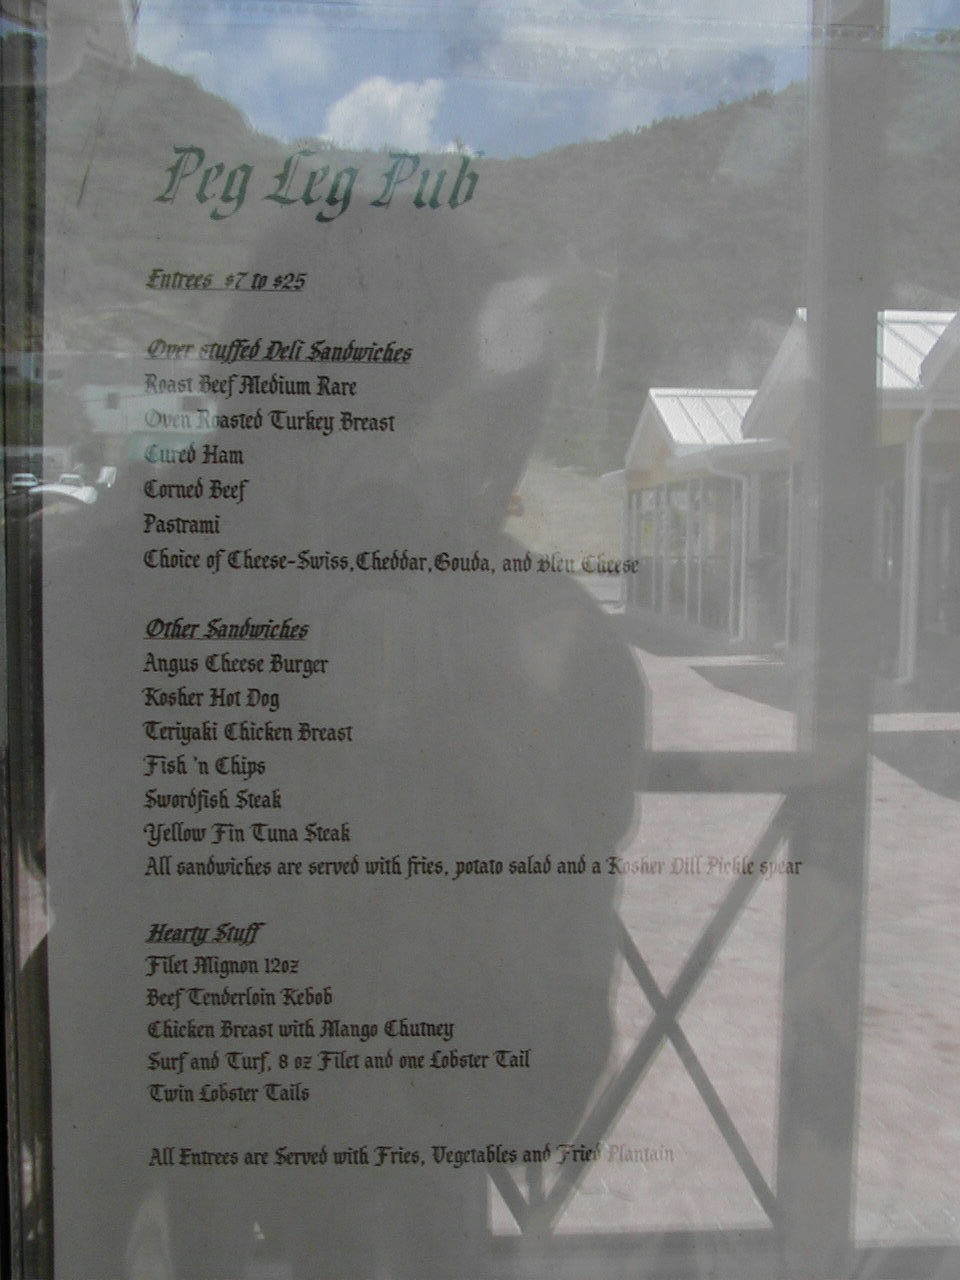 Peg Leg Pub
Entrees $7 to $25
Over stuffed Deli Sandwiches
Roast Beef Medium Rare
Oven Roasted Turkey Breast
Cured Ham
Corned Beef
Pastrami
Choice of Cheese-Swiss,Cheddar,Gouda, and Bleu Cheese
Other Sandwiches
Angus Cheese Burger
Kosher Hot Dog
Teriyaki Chicken Breast
Fish 'n Chips
Swordfish Steak
Yellow Fin Tuna Steak
All sandwiches are served with fries, potato salad and a Kosher Dill Pickle spear
Hearty Stuff
Filet Mignon 12oz
Beef Tenderloin Kebob
Chicken Breast with Mango Chutney
Surf and Turf, 8 oz Filet and one Lobster Tail
Twin Lobster Tails
All Entrees are Served with Fries, Vegetables and Fried Plantain